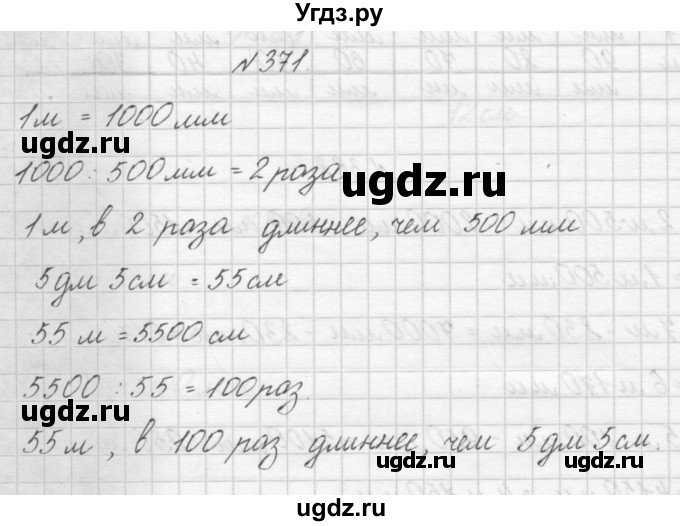 Угдз.ру
№371
1м = 1000мм
ugdz.ru
1000 : 500мм = 2 раза
ugdz.ru
1м, в 2 раза длиннее, чем 500 мм
5дм 5см = 55см
55 м = 5500 см
5500 : 55 = 100раз.
ugdz.ru
55м, в 100 раз длиннее, чем 5дм 5см.
ugdz.ru ugdz.ru
ugdz.ru